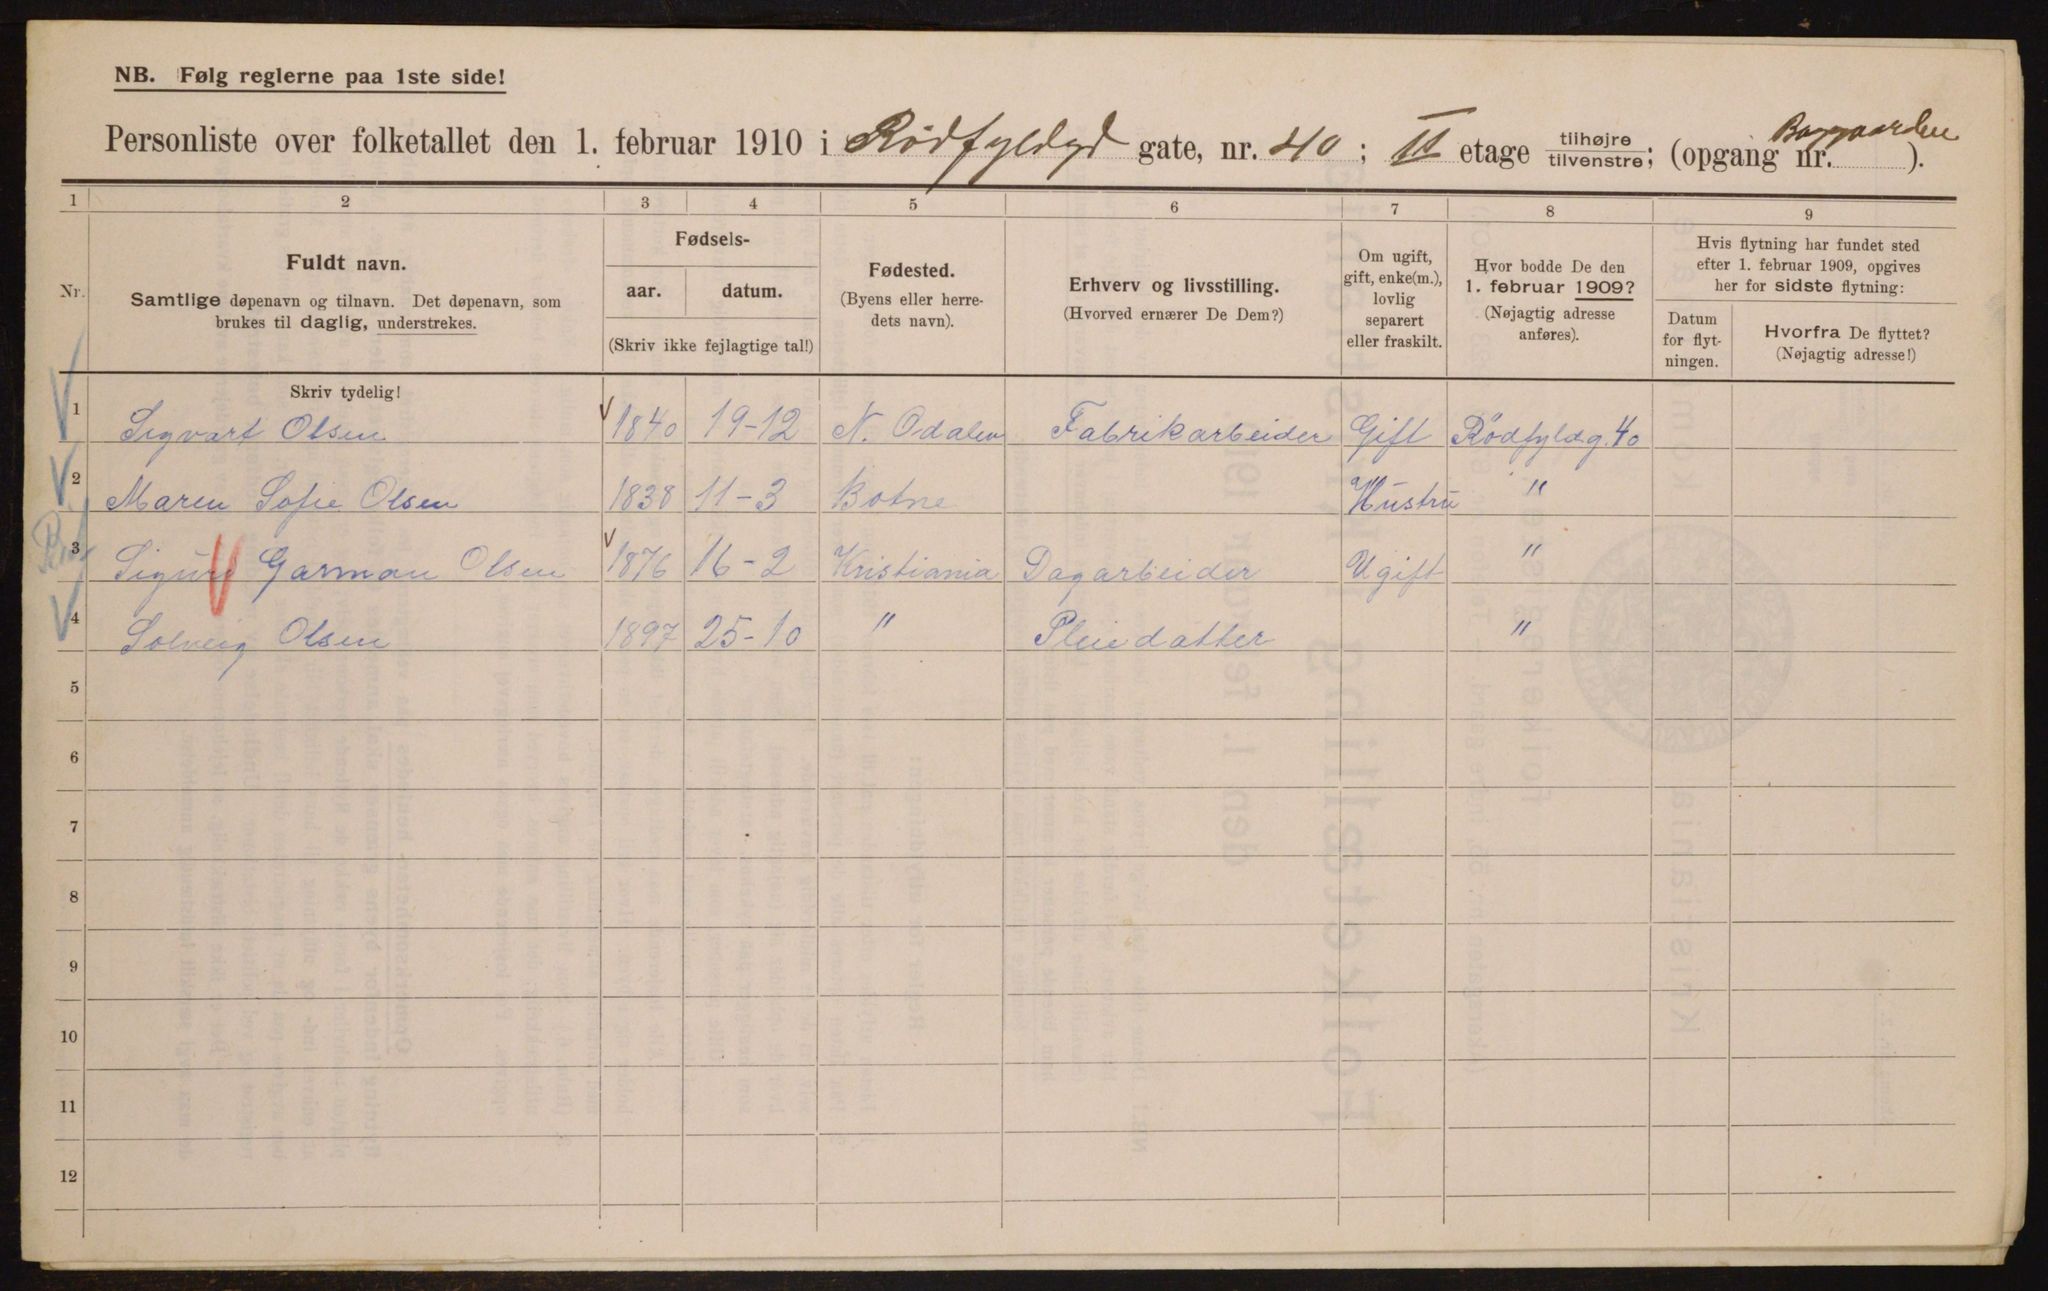 NB. Følg reglerne paa 1ste side!
Personliste over folketallet den 1. februar 1910 i Rødfyldgd gate, nr. 40 ; II etage tilhøjre/tilvenstre; (opgang nr. Baggaarden ).
1 2 3 4 5 6 7 8 9
Nr.
Fuldt navn.
Samtlige døpenavn og tilnavn. Det døpenavn, som
brukes til daglig, understrekes.
Fødsels-
aar. datum.
(Skriv ikke fejlagtige tal!)
Fødested.
(Byens eller herre-
dets navn).
Erhverv og livsstilling.
(Hvorved ernærer De Dem?)
Om ugift,
gift, enke(m.),
lovlig
separert
eller fraskilt.
Hvor bodde De den
1. februar 1909?
(Nøjagtig adresse
anføres).
Hvis flytning har fundet sted
efter 1. februar 1909, opgives
her for sidste flytning:
Datum
for flyt-
ningen.
Hvorfra De flyttet?
(Nøjagtig adresse!)
Skriv tydelig!
1 Sigvart Olsen 1840 19-12 N. Odalen Fabrikarbeider Gift Rødfyldg. 40
2 Maren Sofie Olsen 1838 11-3 Botne Hustru "
3 Sigurd Garman Olsen 1876 16-2 Kristiania Dagarbeider Ugift "
4 Solveig Olsen 1897 25-10 " Pleiedatter "
5
6
7
8
9
10
11
12